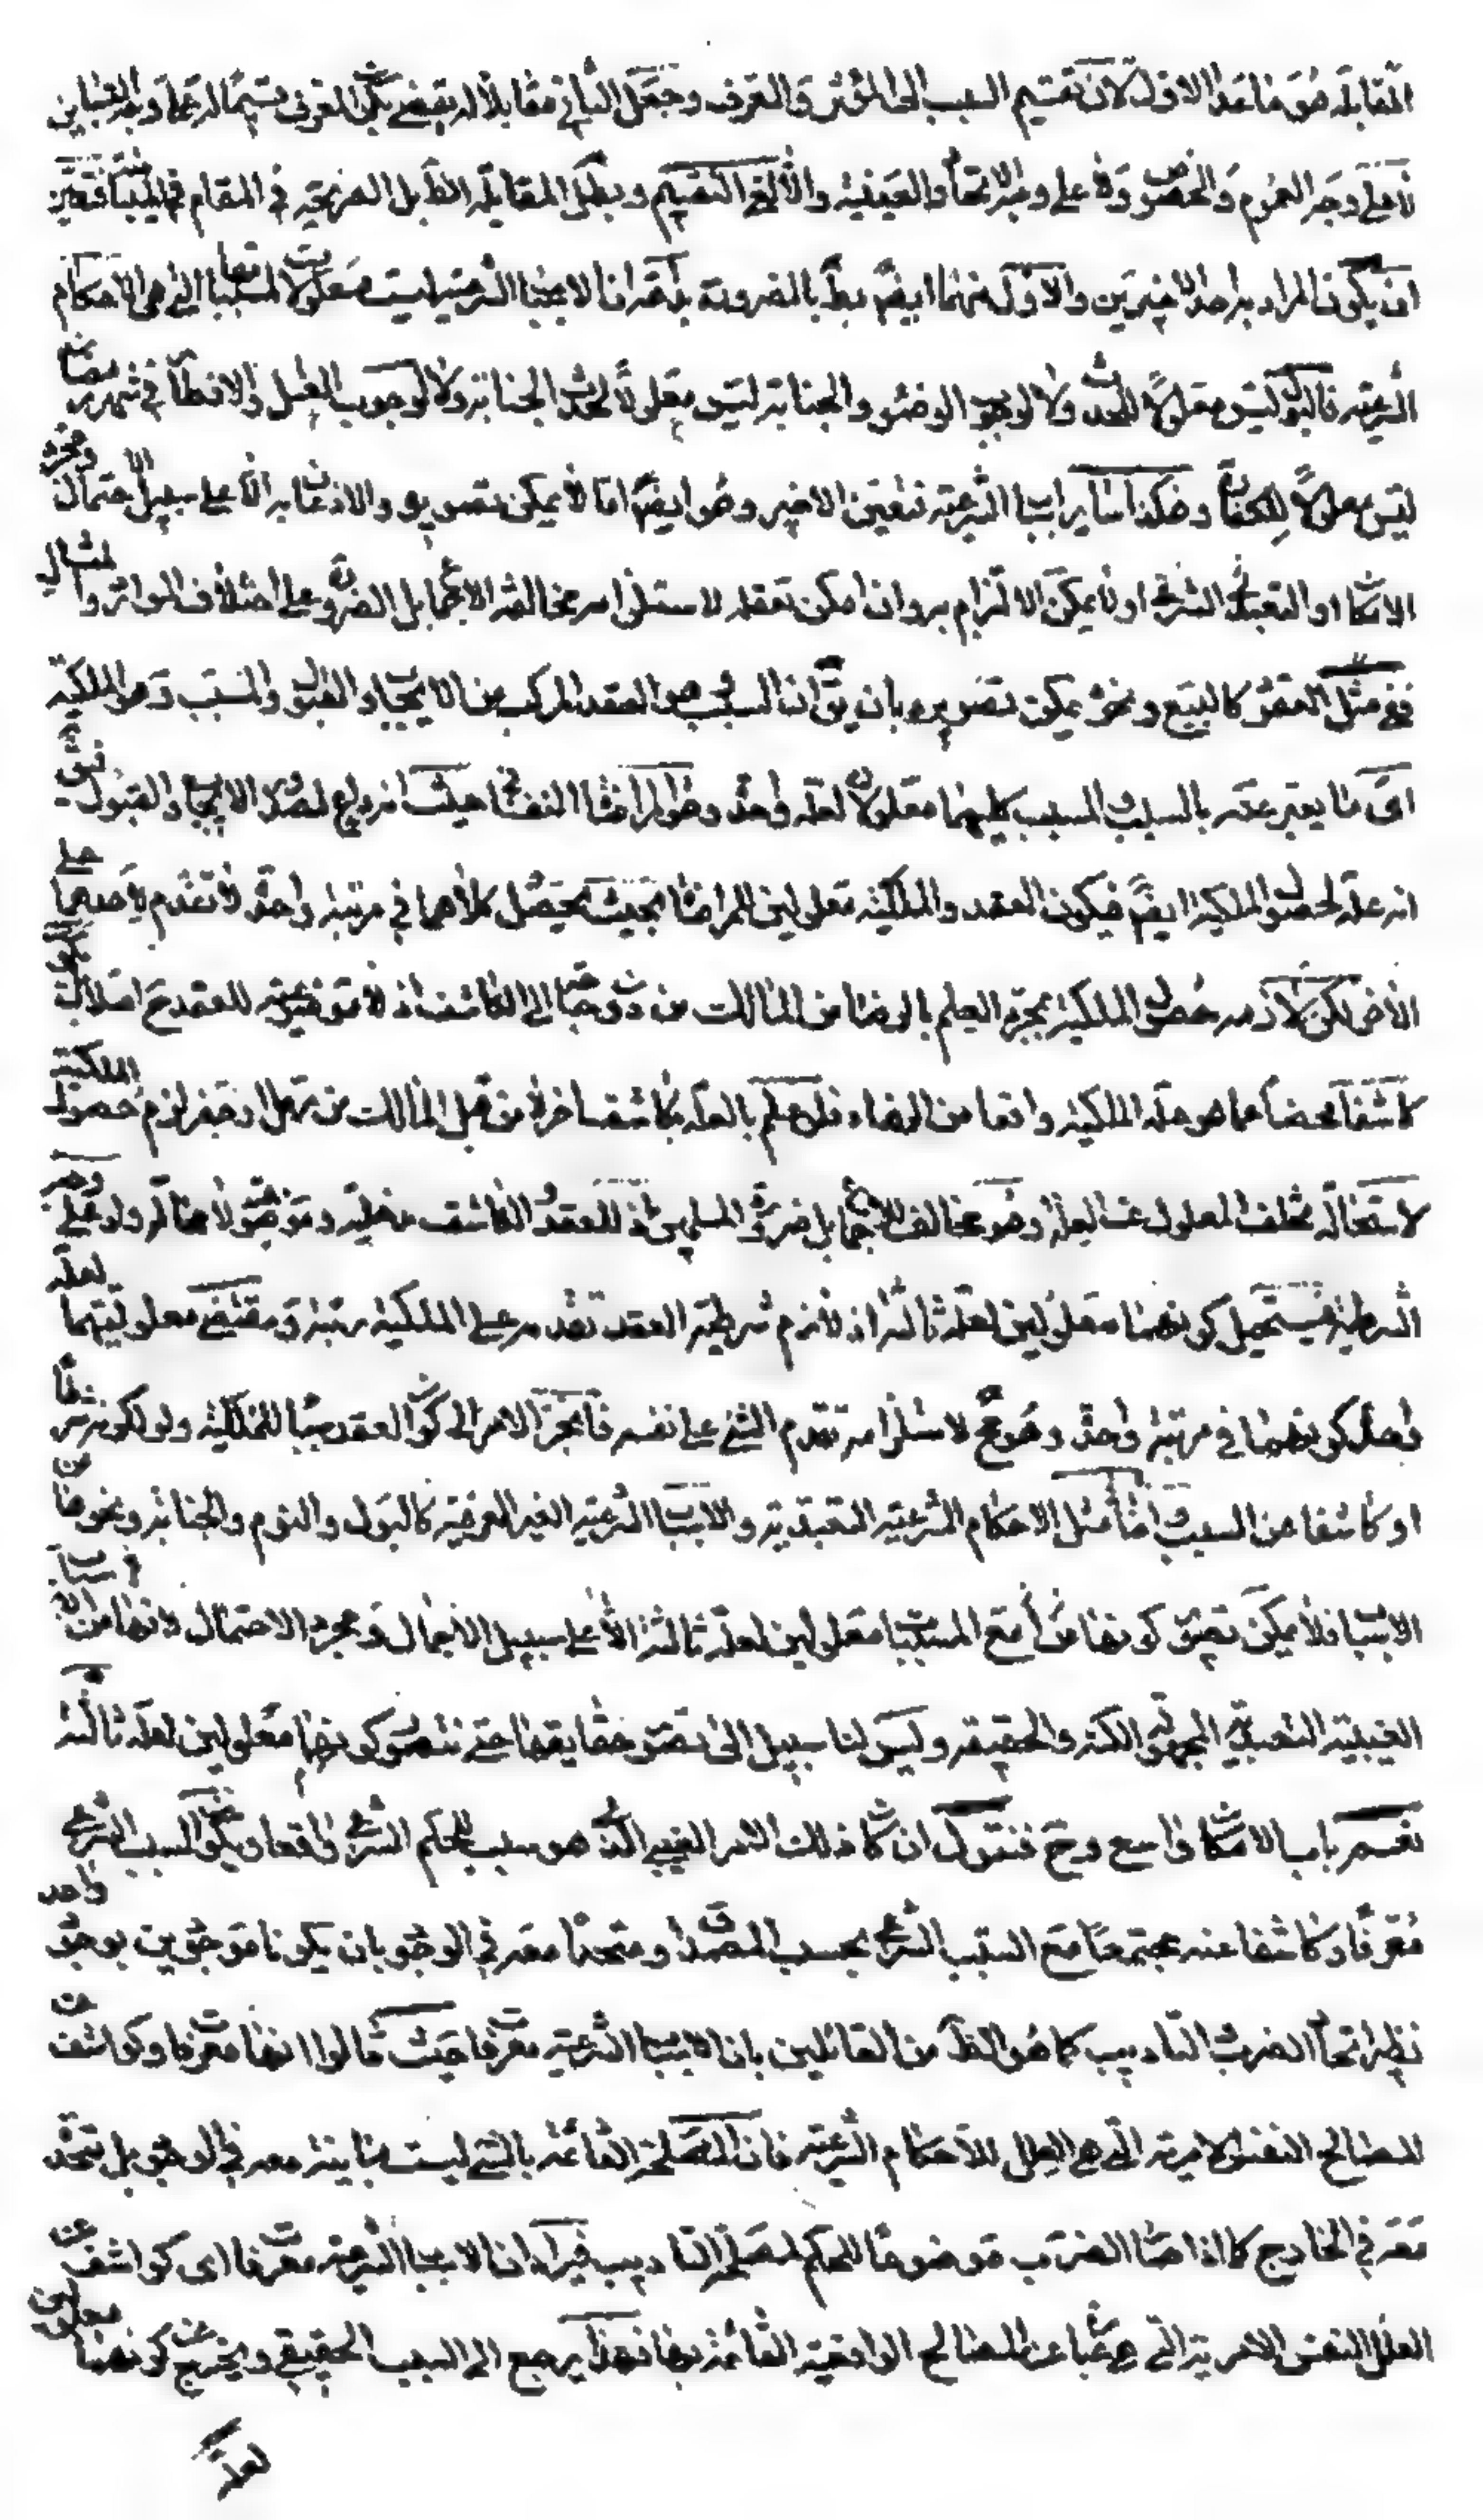 المقابلة هو ما عدا الاول لان تقسيم السبب الى المؤثر والمعرف وجعل الثانى مقابلا له يقتضى كون المعرف قسيما له تماما وجه التباين
لا على وجه العموم والخصوص ولا على وجه الاتحاد والعينية والا لغى التقسيم وبطل المقابلة الظ بل الصريحة فى المقام
ان يكون المراد به احد الاخيرين والاول منهما ايضا بط بالضرورة بداهة ان الاسباب الشرعية ليست معلولات لمسبباتها التى هى الاحكام
الشرعية فالبول ليس معلولا للحدث ولا لوجوب الوضوء والجنابة ليس معلولا لحدث الجنابة ولا لوجوب الغسل والافطار فى شهر رمضان
ليس معلولا للكفارة وهكذا ساير اسباب الشرعية فتعين الاخير وهو ايضا اما لا يمكن تصويره والاذعان به الا على سبيل الاحتمال ومجرد
الامكان او التعبد الشرعى او لا يمكن الالتزام به وان امكن تعقله لاستلزامه مخالفة الاجماع بل الضرورة على اختلاف الموارد والمسائل
ففى مثل العقود كالبيع ونحوه يمكن تصويره بان يق ان السبب هو العقد المركب من الايجاب والقبول والمسبب وهو الملكية
اى ما يعبر عنه بالسبب والمسبب كليهما معلولان لعلة واحدة وهو المراضاة النفسانية حيث انه داع لصدور الايجاب والقبول
انه علة لحصول الملكية ايضا فيكون العقد والملكية معلولين للمراضاة بحيث يحصل كلاهما فى مرتبة واحدة لا تقدم لاحدهما على
الاخر لكن لازمه حصول الملكية بمجرد العلم بالرضا من المالك من دون حاجة الى الكاشف اذ لا موضوعية للعقد ح اصلا بل يكون
كاشفا محضا عما هو علة الملكية واقعا من الرضاء فلو علم بالعلة بكاشف اخر من قبل المالك من رمل او جفر لزم حصول الملكية
لاستحالة تخلف المعلول عن العلة وهو مخالف الاجماع بل ضرورة المسلمين اذ للعقد الكاشف مدخلية وموضوعية لا محالة ولو على وجه
الشرطية فيستحيل كونهما معلولين لعلة ثالثة اذ لازم شرطية العقد تقدمه على الملكية رتبة ومقتضى معلوليتهما لعلة
واحدة كونهما فى مرتبة واحدة وهو مح لاستلزامه تقدم الشئ على نفسه فانجر الامر الى كون العقد سببا للملكية ولو لكونه شرطا
او كاشفا عن السبب واما مثل الاحكام الشرعية التعبدية والاسباب الشرعية الغير العرفية كالبول والنوم والجنابة ونحوها من
الاسباب فلا يمكن تصوير كونها مع المسببات معلولين لعلة ثالثة الا على سبيل الاجمال ومجرد الاحتمال لانها من الاسباب
الغيبية التعبدية المجهولة الكنه والحقيقة وليس لنا سبيل الى تصور حقايقها حتى نتصور كونهما معلولين لعلة ثالثة
نعم باب الامكان واسع وح فنقول ان كان ذلك الامر الغيبى الذى هو سبب للحكم الشرعى واقعا ويكون السبب الشرعى
معرفا وكاشفا عنه مجتمعا مع السبب الشرعى بحسب المصداق ومتحدا معه فى الوجود بان يكونا موجودين بوجود واحد
نظير اتحاد الضرب والتاديب كما هو الظ من القائلين بان الاسباب الشرعية معرفات حيث قالوا انها معرفات وكواشف عن
المصالح النفس الامرية التى هى العلل للاحكام الشرعية فان المصلحة القائمة بالشئ ليست مباينة معه فى الوجود بل تتحد
معه فى الخارج كما اذا صار الضرب موضوعا للحكم لمصلحة التاديب فيراد ان الاسباب الشرعية معرفات اى كواشف عن
العلل النفس الامرية التى هى عبارة عن المصالح الواقعية القائمة بها فهذا يرجع الى السبب الحقيقى ويخرج عن كونهما معلولين
لعلة